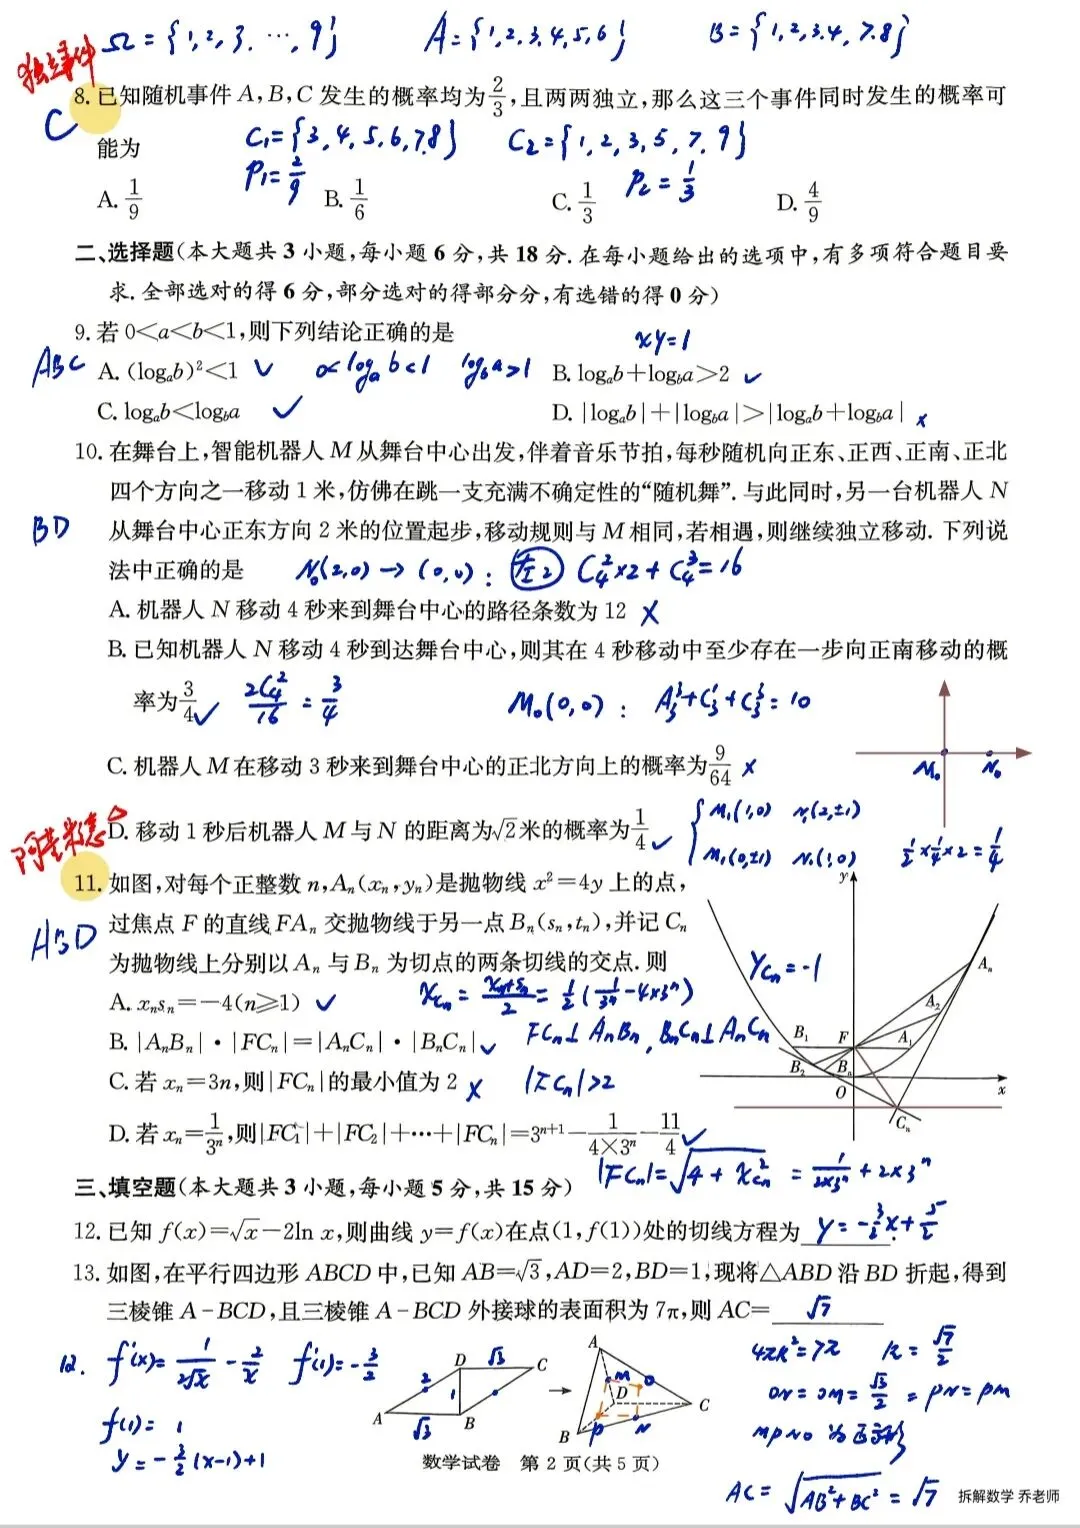 Ω = {1,2,3,…,9}  A = {1,2,3,4,5,6}  B = {1,2,3,4,7,8}
独立事件
8. 已知随机事件 A,B,C 发生的概率均为2/3,且两两独立,那么这三个事件同时发生的概率可
C
能为  C₁={3,4,5,6,7,8}  C₂={1,2,3,5,7,9}
P₁=2/9  P₂=1/3
A. 1/9  B. 1/6  C. 1/3  D. 4/9
二、选择题(本大题共 3 小题,每小题 6 分,共 18 分. 在每小题给出的选项中,有多项符合题目要
求. 全部选对的得 6 分,部分选对的得部分分,有选错的得 0 分)
9. 若 0<a<b<1,则下列结论正确的是  xy=1
ABC
A. (logₐb)²<1 √  0<logₐb<1  log_b a>1  B. logₐb+log_b a>2 √
C. logₐb<log_b a √  D. |logₐb|+|log_b a|>|logₐb+log_b a| ×
10. 在舞台上,智能机器人 M 从舞台中心出发,伴着音乐节拍,每秒随机向正东、正西、正南、正北
四个方向之一移动 1 米,仿佛在跳一支充满不确定性的“随机舞”. 与此同时,另一台机器人 N
BD
从舞台中心正东方向 2 米的位置起步,移动规则与 M 相同,若相遇,则继续独立移动. 下列说
法中正确的是  N₀(2,0)→(0,0): 左2  C₄²×2+C₄³=16
A. 机器人 N 移动 4 秒来到舞台中心的路径条数为 12 ×
B. 已知机器人 N 移动 4 秒到达舞台中心,则其在 4 秒移动中至少存在一步向正南移动的概
率为3/4 √  2C₄²/16=3/4  M₀(0,0): A₃³+C₃¹+C₃³=10
C. 机器人 M 在移动 3 秒来到舞台中心的正北方向上的概率为9/64 ×
M₀ N₀
阿基米德△
D. 移动 1 秒后机器人 M 与 N 的距离为√2米的概率为1/4 √  M₁(1,0) N₁(2,±1)
M₁(0,±1) N₁(1,0)  1/2×1/4×2=1/4
11. 如图,对每个正整数 n,Aₙ(xₙ,yₙ)是抛物线 x²=4y 上的点,
ABD
过焦点 F 的直线 FAₙ 交抛物线于另一点 Bₙ(sₙ,tₙ),并记 Cₙ
为抛物线上分别以 Aₙ 与 Bₙ 为切点的两条切线的交点. 则  y_Cₙ=-1
A. xₙsₙ=-4(n≥1) √  x_Cₙ=(xₙ+sₙ)/2=1/2(1/3ⁿ-4×3ⁿ)
B. |AₙBₙ|·|FCₙ|=|AₙCₙ|·|BₙCₙ| √  FCₙ⊥AₙBₙ, BₙCₙ⊥AₙCₙ
C. 若 xₙ=3n,则|FCₙ|的最小值为 2 ×  |FCₙ|>2
D. 若 xₙ=1/3ⁿ,则|FC₁|+|FC₂|+…+|FCₙ|=3ⁿ⁺¹-1/(4×3ⁿ)-11/4 √
y Aₙ A₂ B₁ F A₁ B₂ Bₙ O x Cₙ
|FCₙ|=√(4+x_Cₙ²)=1/(2×3ⁿ)+2×3ⁿ
三、填空题(本大题共 3 小题,每小题 5 分,共 15 分)
12. 已知 f(x)=√x-2ln x,则曲线 y=f(x)在点(1,f(1))处的切线方程为 y=-3/2x+5/2.
13. 如图,在平行四边形 ABCD 中,已知 AB=√3,AD=2,BD=1,现将△ABD 沿 BD 折起,得到
三棱锥 A-BCD,且三棱锥 A-BCD 外接球的表面积为 7π,则 AC= √7
12. f'(x)=1/(2√x)-2/x  f'(1)=-3/2
f(1)=1
y=-3/2(x-1)+1
D √3 C 2 1 A √3 B
A M O D C B P N
4πR²=7π  R=√7/2
ON=OM=√3/2=PN=PM
MPNO 为正方形
AC=√(AB²+BC²)=√7
数学试卷 第 2 页(共 5 页)
拆解数学 乔老师